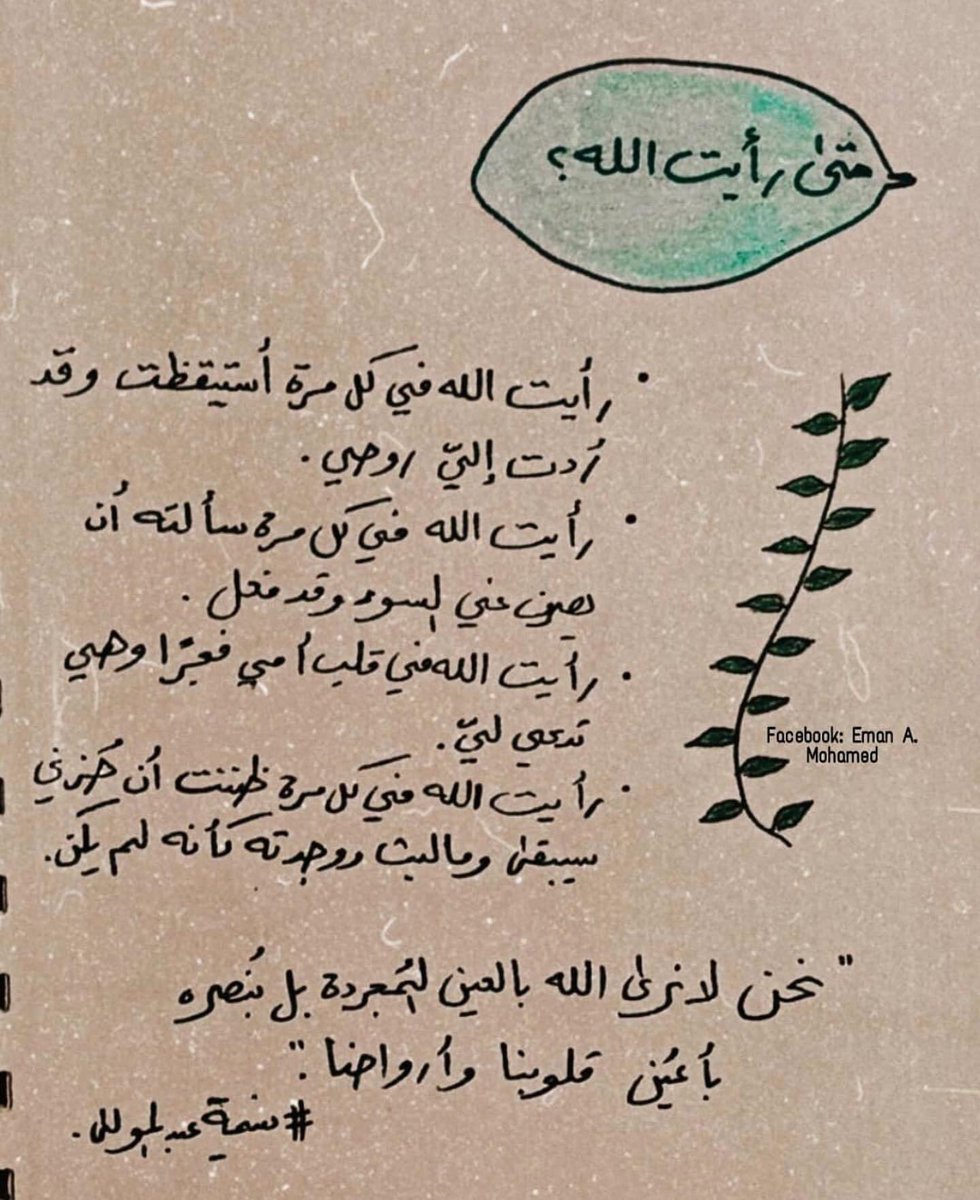 متىٰ رأيت الله؟
• رأيت الله في كل مرة أستيقظت وقد
رُدت إليّ روحي.
• رأيت الله في كل مرة سألته أن
يصرف عني السوء وقد فعل.
• رأيت الله في قلب أمي فجرًا وهي
تدعي ليّ.
• رأيت الله في كل مرة ظننت أن حُزني
سيبقىٰ وما لبث ووجدته كأنه لم يكن.
Facebook: Eman A.
Mohamed
" نحن لا نرىٰ الله بالعين المُجردة بل نُبصره
بأعيُن قلوبنا وأرواحنا ."
#سمية عبد المولى.